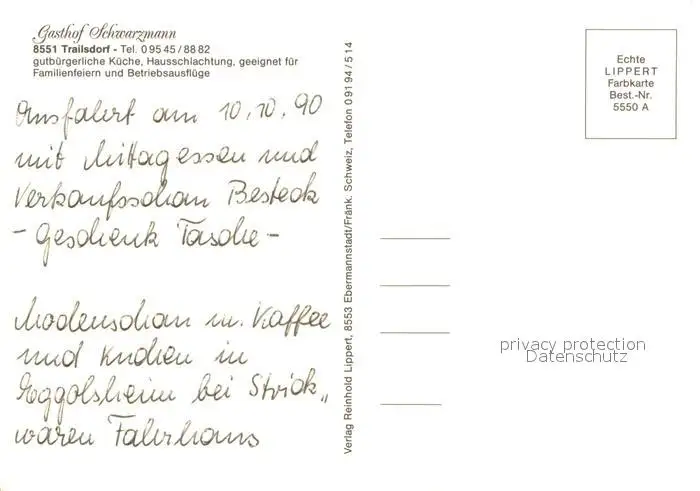 Gasthof Schwarzmann
8551 Trailsdorf - Tel. 0 95 45 / 88 82
gutbürgerliche Küche, Hausschlachtung, geeignet für
Familienfeiern und Betriebsausflüge
Ausfahrt am 10.10.90
mit Mittagessen und
Verkaufsschau Besteck
- Geschenk Tasche -
Modenschau m. Kaffee
und Kuchen in
Eggolsheim bei Strick„
waren Fahrhaus
Verlag Reinhold Lippert, 8553 Ebermannstadt/Fränk. Schweiz, Telefon 0 91 94 / 5 14
Echte
LIPPERT
Farbkarte
Best.-Nr.
5550 A
privacy protection
Datenschutz